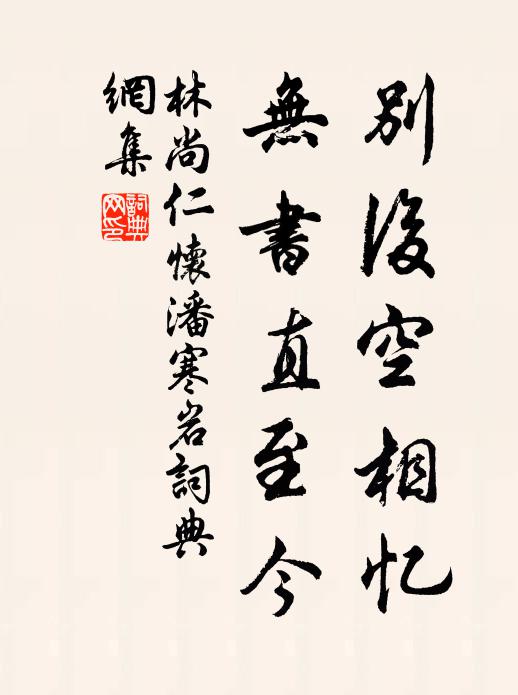 別後空相忆
無書直至今
林尚仁懷潘寒岩詞典
網集
詞典网印